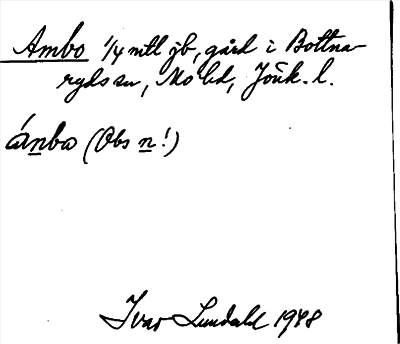 Ambo 1/4 mtl jb, gård i Bottna-
ryds sn, Mo hd, Jönk. l.
ánbo (Obs n!)
Ivar Lundahl 1948